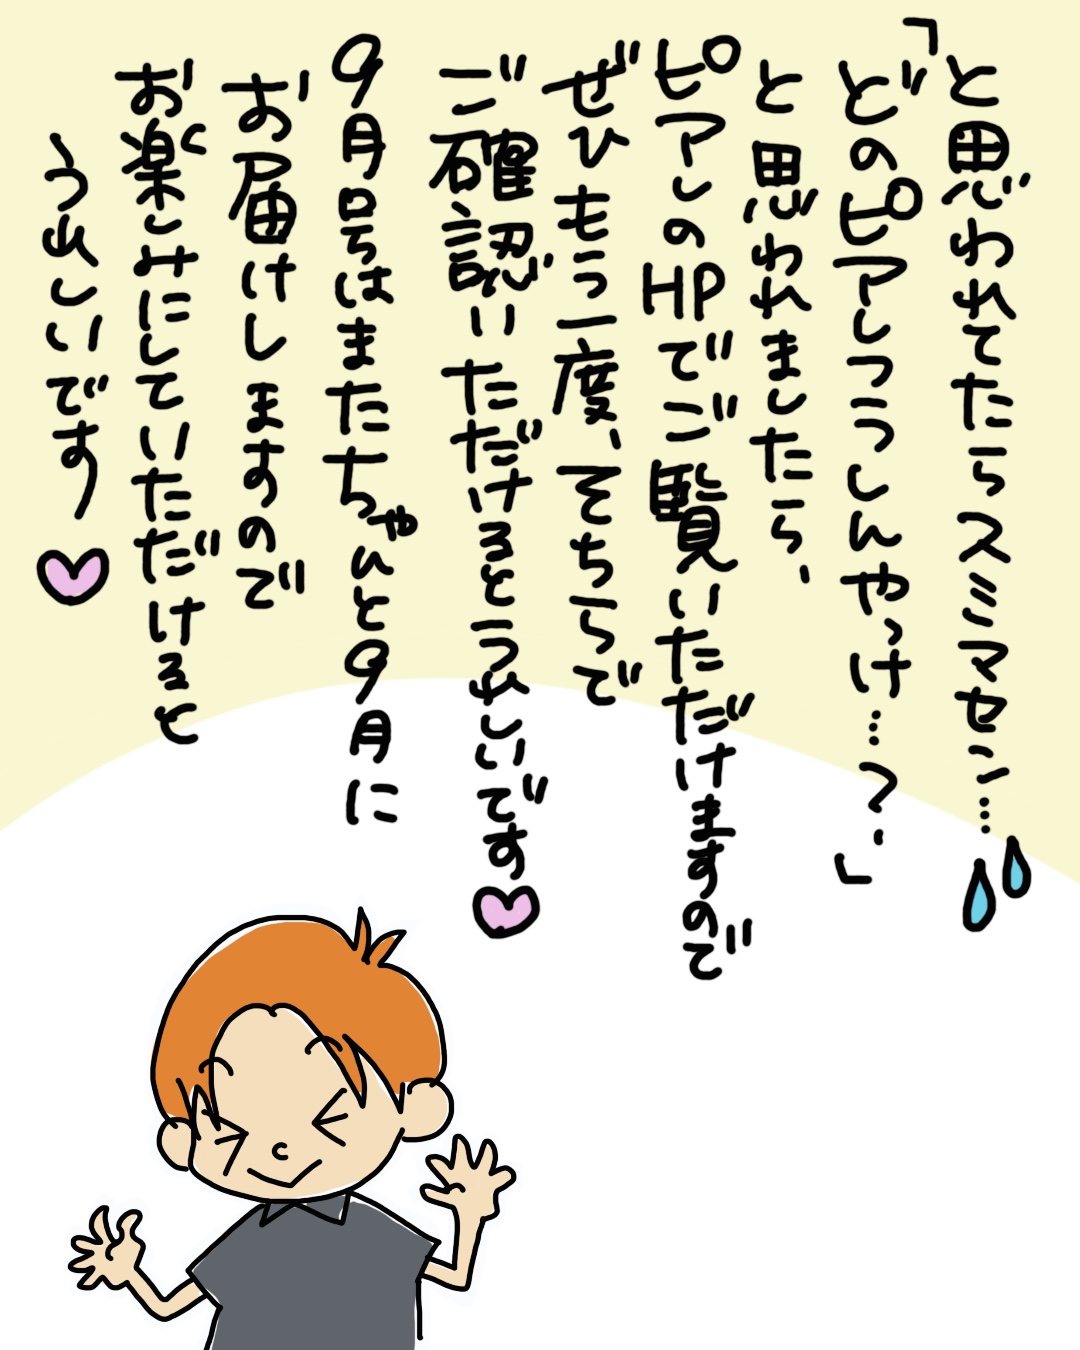 と思われてたらスミマセン…
「どのピアしつうしんやっけ…?」
と思われましたら、
ピアしのHPでご覧いただけますので
ぜひもう一度、そちらで
ご確認いただけるとうれしいです
9月号はまたちゃんと9月に
お届けしますので
お楽しみにしていただけると
うれしいです